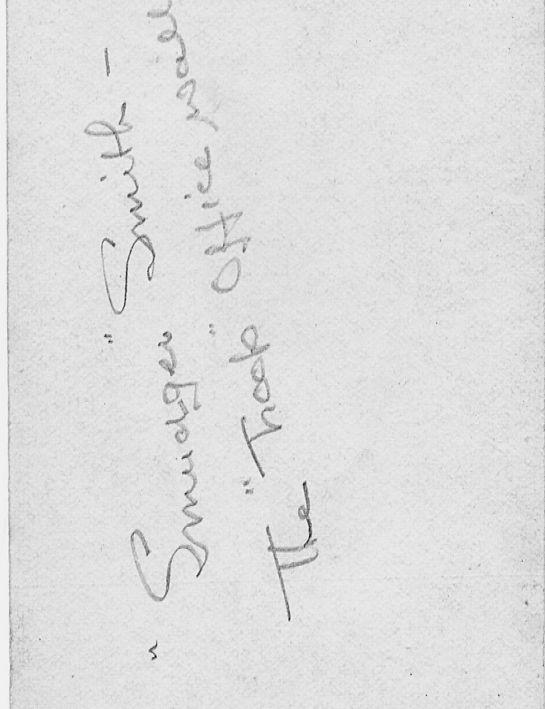 "Smudger" Smith -
The "Troop" Office wall